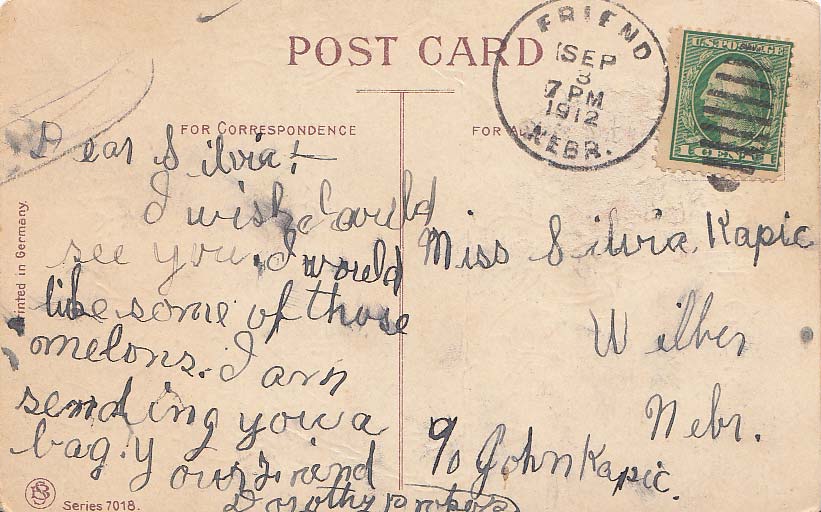 POST CARD
FRIEND
SEP
3
7 PM
1912
NEBR.
U.S. POSTAGE
1 CENT 1
FOR CORRESPONDENCE
FOR
Printed in Germany.
Dear Silvia:-
I wish I could
see you. I would
like some of those
melons. I am
sending you a
bag. Your Friend
Dorothy
Miss Silvia Kapic
Wilber
Nebr.
c/o John Kapic.
Series 7018.